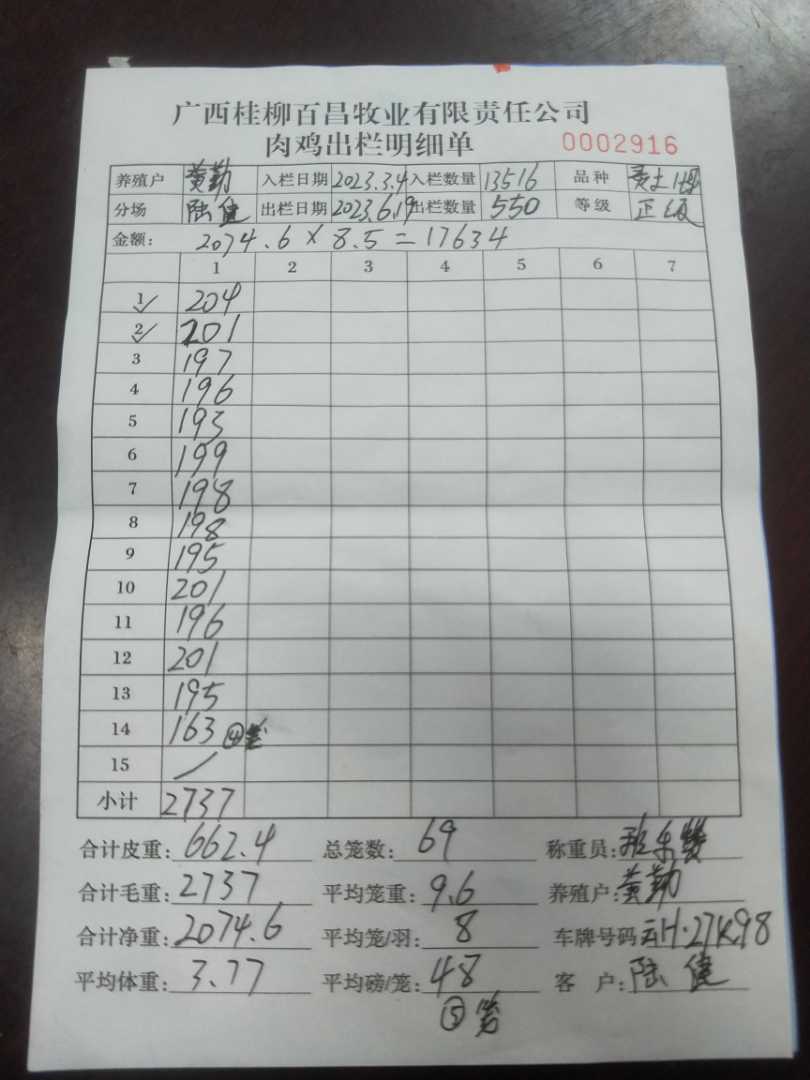 广西桂柳百昌牧业有限责任公司
肉鸡出栏明细单 0002916
养殖户 黄勤 入栏日期 2023.3.4 入栏数量 13516 品种 黄土
分场 陆健 出栏日期 2023.6.19 出栏数量 550 等级 正级
金额: 2074.6 × 8.5 = 17634
1 2 3 4 5 6 7
1 ✓ 204
2 ✓ 201
3 197
4 196
5 193
6 199
7 198
8 198
9 195
10 201
11 196
12 201
13 195
14 163 ④笼
15 /
小计 2737
合计皮重: 662.4 总笼数: 69 称重员:
合计毛重: 2737 平均笼重: 9.6 养殖户: 黄勤
合计净重: 2074.6 平均笼/羽: 8 车牌号码 云H·27K98
平均体重: 3.77 平均磅/笼: 48 客 户: 陆健
⑤笼